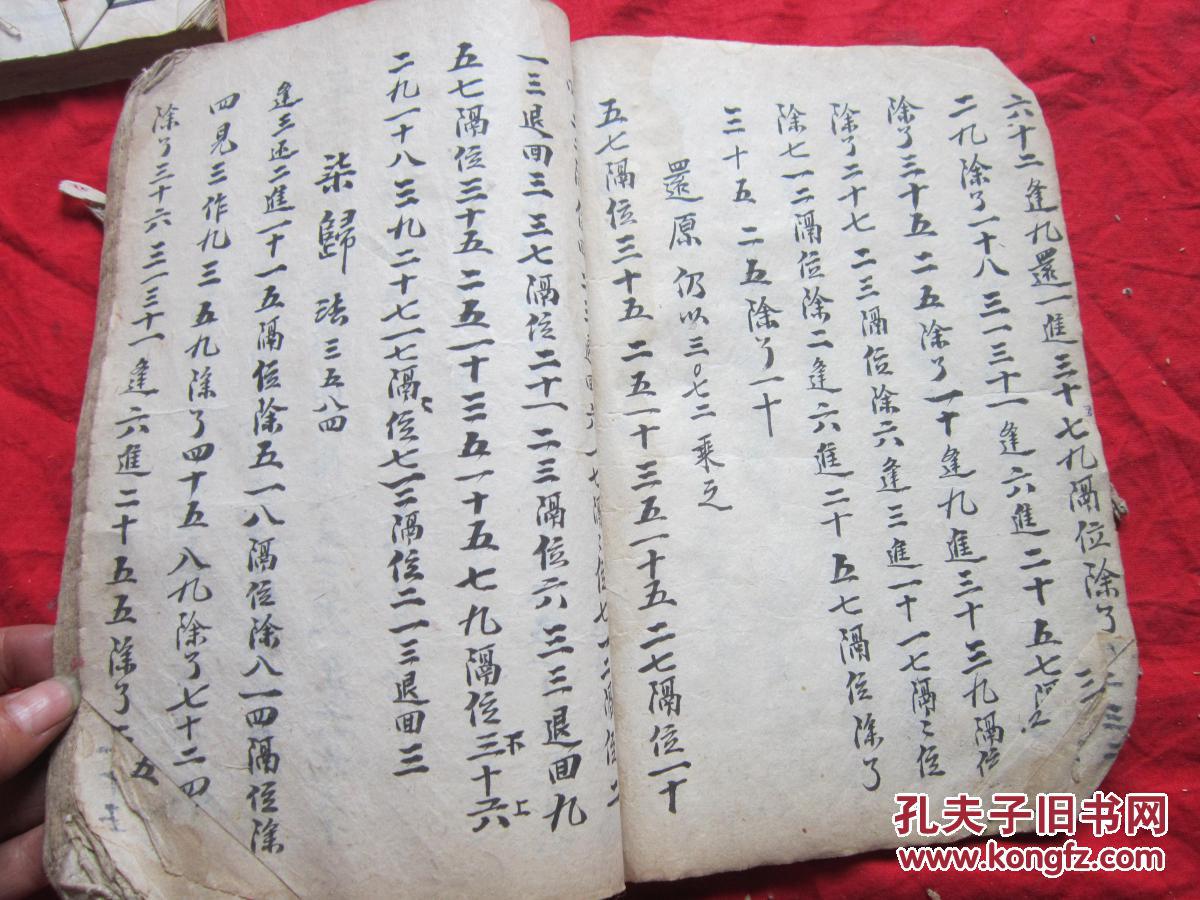 六十二逢九還一進三十七九隔位除了
二九除了一十八三一三十一逢六進二十五七
除了三十五二五除了一十逢九進三十三九隔位
除了二十七二三隔位除六逢三進一十一七隔々位
除七一二隔位除二逢六進二十五七隔位除了
三十五二五除了一十
還原仍以三〇七二乘之
五七隔位三十五二五一十三五一十五二七隔位一十
一三退回三三七隔位二十一二三隔位六三三退回九
五七隔位三十五二五一十三五一十五七九隔位三十六
下上
二九一十八三九二十七一七隔位七一二隔位二一三退回三
柒歸法三五八四
逢三还二進一十一五隔位除五一八隔位除八一四隔位除
四見三作九三五九除了四十五八九除了七十二四
除了三十六三一三十一逢六進二十五五除了二
五
孔夫子旧书网
www.kongfz.com